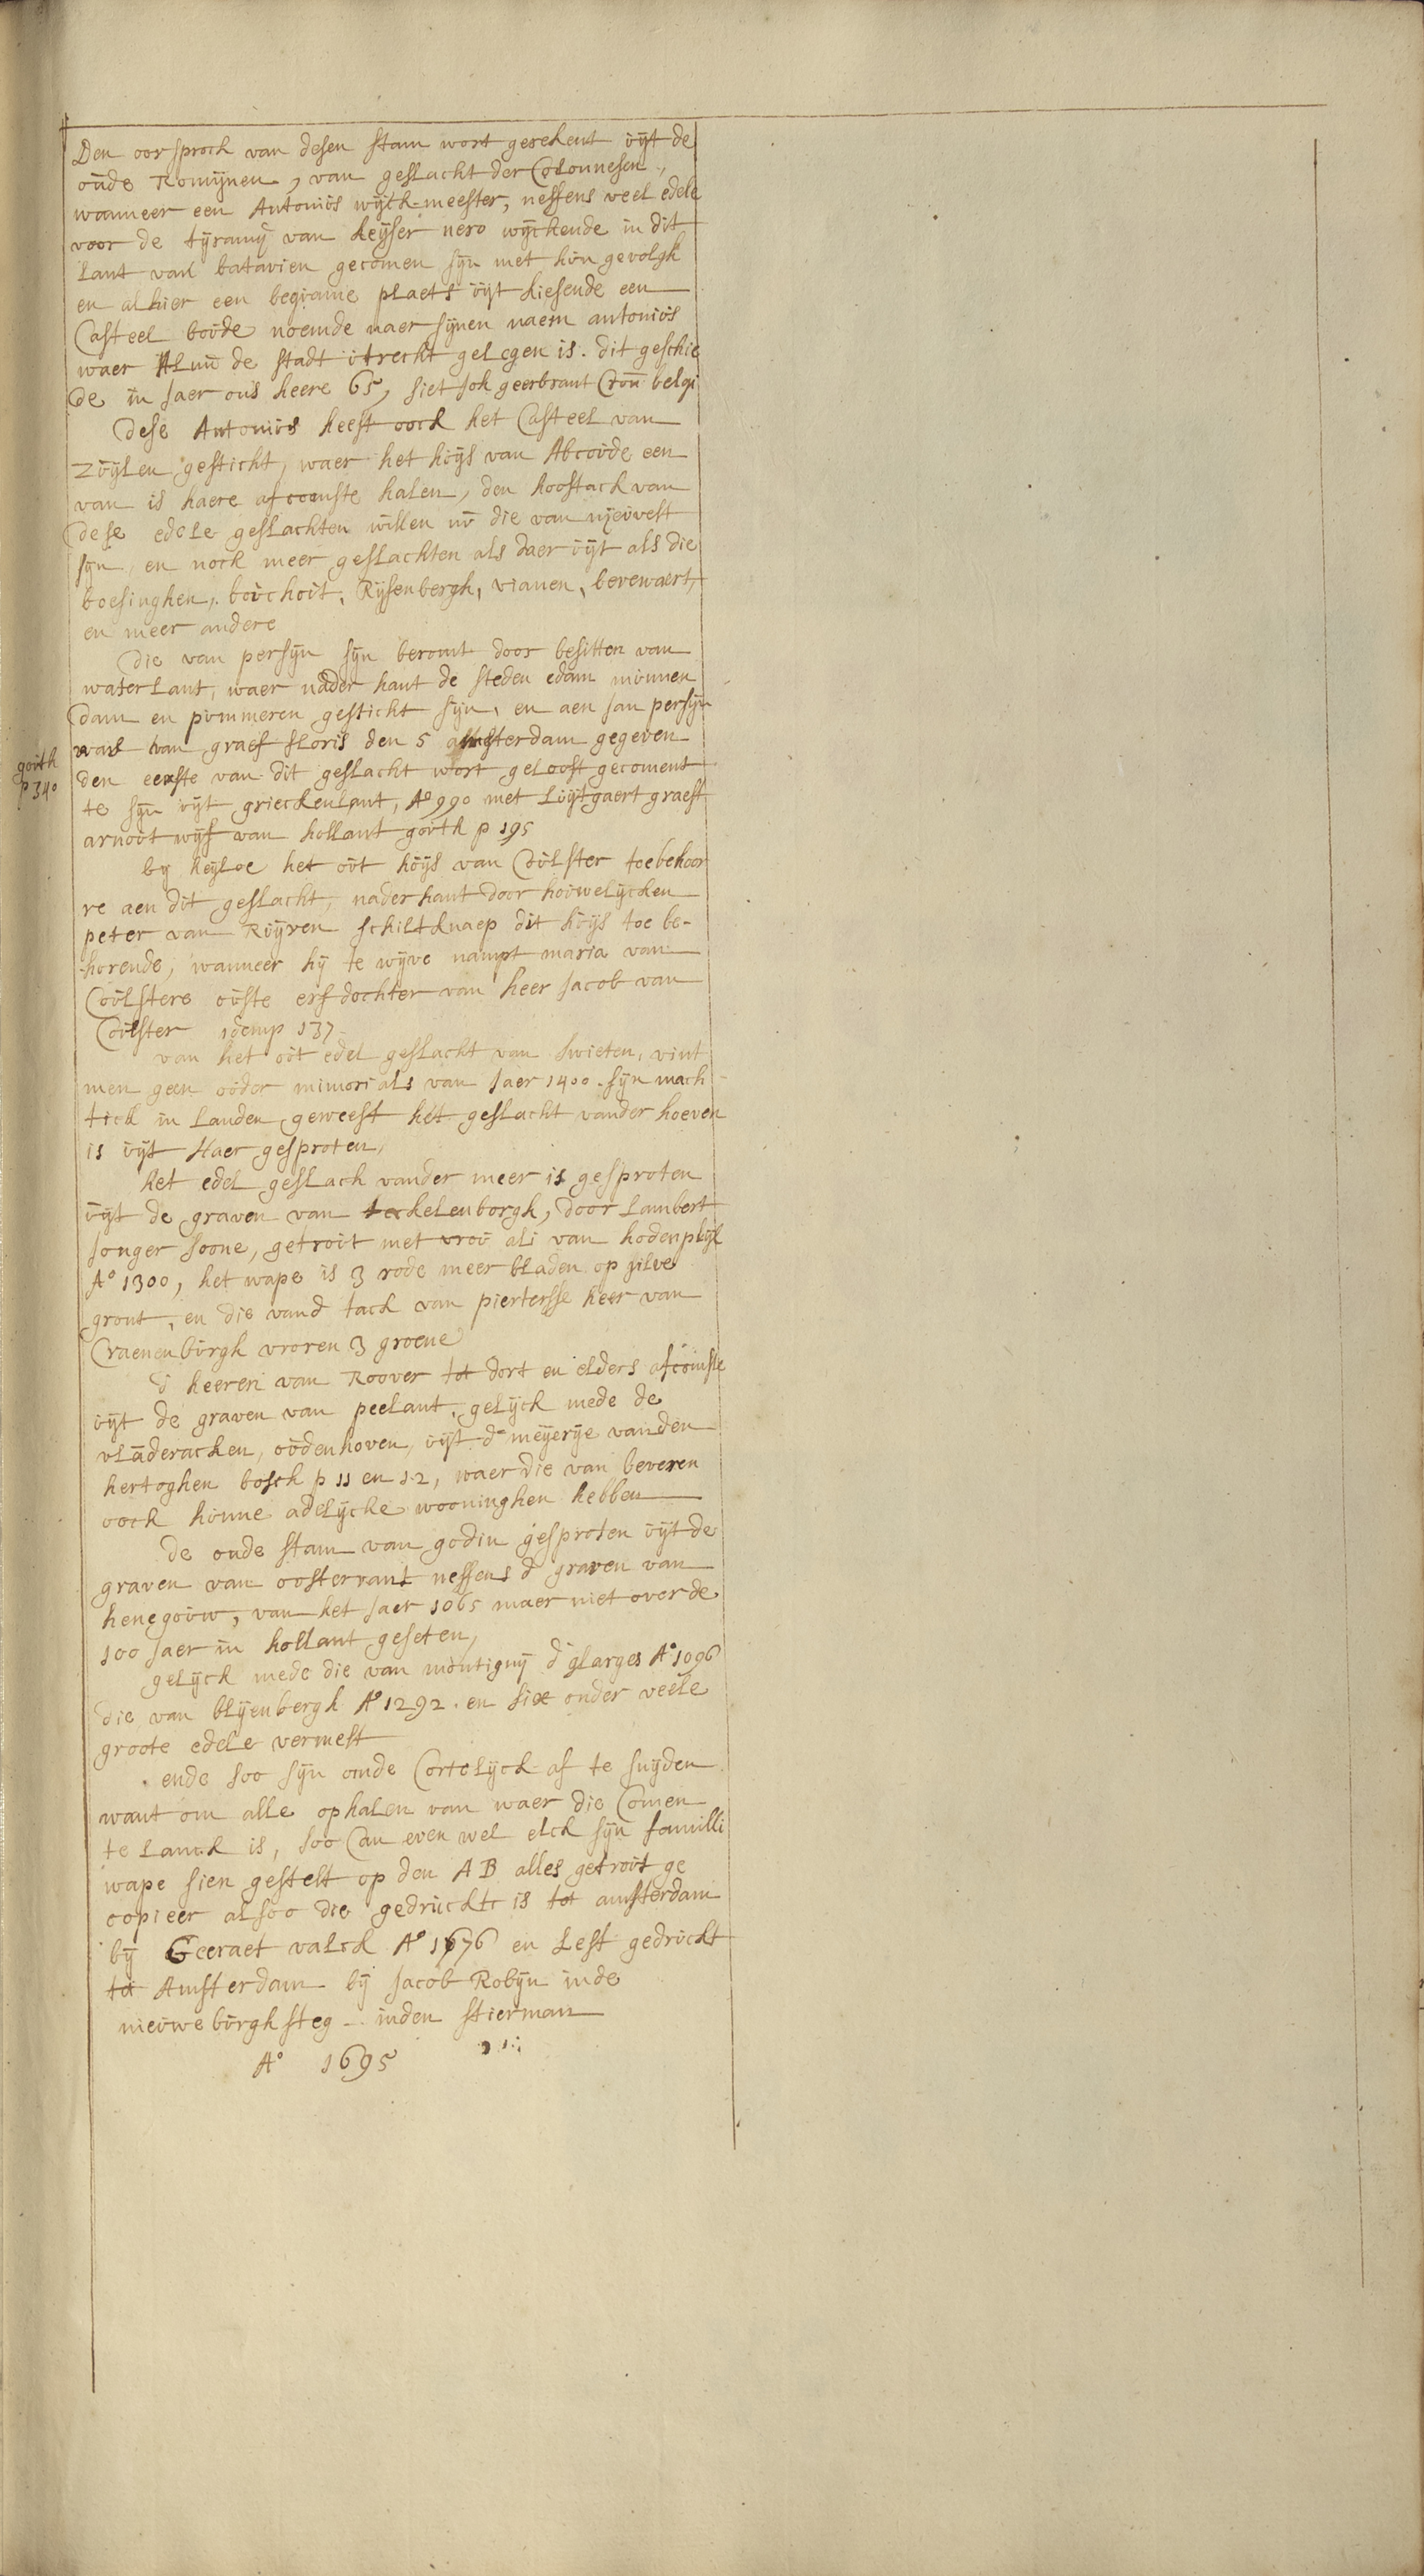 Den oorsprock van desen stam wort gerekent uijt de
oude Romijnen, van geslacht der Colonnesen,
wanneer een Antonius wijck-meester, neffens veel edele
voor de tijranij van keijser nero wijckende in dit
Lant van batavien gecomen sijn met hun gevolgh
en alhier een bequame plaets uijt kiesende een
Casteel boude noemde naer sijnen naem antonius
waer Al nu de stadt utrecht gelegen is. dit geschie
de in jaer ons heere 65, siet joh geerbrant Cron belgi
dese Antonius heeft oock het Casteel van
zuijlen gesticht, waer het huijs van Abcoude een
van is haere afcomste halen, den hooftack van
dese edele geslachten willen nu die van nijevelt
sijn, en noch meer geslachten als daer uijt als die
boesinghen, bouchout, Rijsenbergh, vianen, beverwaert,
en meer andere
die van persijn sijn beromt door besitten van
waterlant, waer nader hant de steden edam munnen
dam en purmmeren gesticht sijn, en aen jan persijn
wart van graef floris den 5 amsterdam gegeven
gouth
p 340
den eerste van dit geslacht wort gelooft gecoment
te sijn uijt grieckenlant, A° 990 met Luijtgaert graeff
arnout wijf van hollant gouth p 195
bij heijloe het out huijs van Cuilster toebehoor
re aen dit geslacht, nader hant door houwelijcken
peter van Ruijven schiltknaep dit huijs toe be-
horende, wanneer hij te wijve nampt maria van
Cuilstere ouste erfdochter van heer jacob van
Cuilster idemp 137
van het out edel geslacht van swieten, vint
men geen ouder mimorials van jaer 1400. sijn mach
tick in landen geweest het geslacht vander hoeven
is uijt Haer gesproten,
het edel geslach vander meer is gesproten
uijt de graven van teckelenborgh, door lambert
jonger soone, getrout met vrou ali van hodenpijl
A° 1300, het wape is 3 rode meer bladen op silve
gront, en die vand tack van piertersse heer van
Craenenburgh vroren 3 groene
d heeren van Roover tot dort en elders afcomste
uijt de graven van peelant, gelijck mede de
vladeracken, oudenhoven, uijt de meijerije van den
hertoghen bosch p 11 en 12, waer die van beveren
oock hunne adelijcke wooninghen hebben
de oude stam van godin gesproten uijt de
graven van oosterrant neffens d graven van
henegouw, van het jaer 1065 maer niet over de
100 jaer in hollant geseten,
gelijck mede die van montignij d glarges A° 1096
die van blijenbergh A° 1292. en six onder veele
groote edele vermelt
ende soo sijn omde Cortelijck af te snijden
want om alle ophalen van waer die Comen
te lanck is, soo Can even wel elck sijn familli
wape sien gestelt op den A B alles getrout ge
copieer alsoo die gedruckte is tot amsterdam
bij Geeraet valck A° 1676 en lest gedruckt
tot Amsterdam bij jacob Robijn inde
nieuwe burgh steg inden stierman
A° 1695